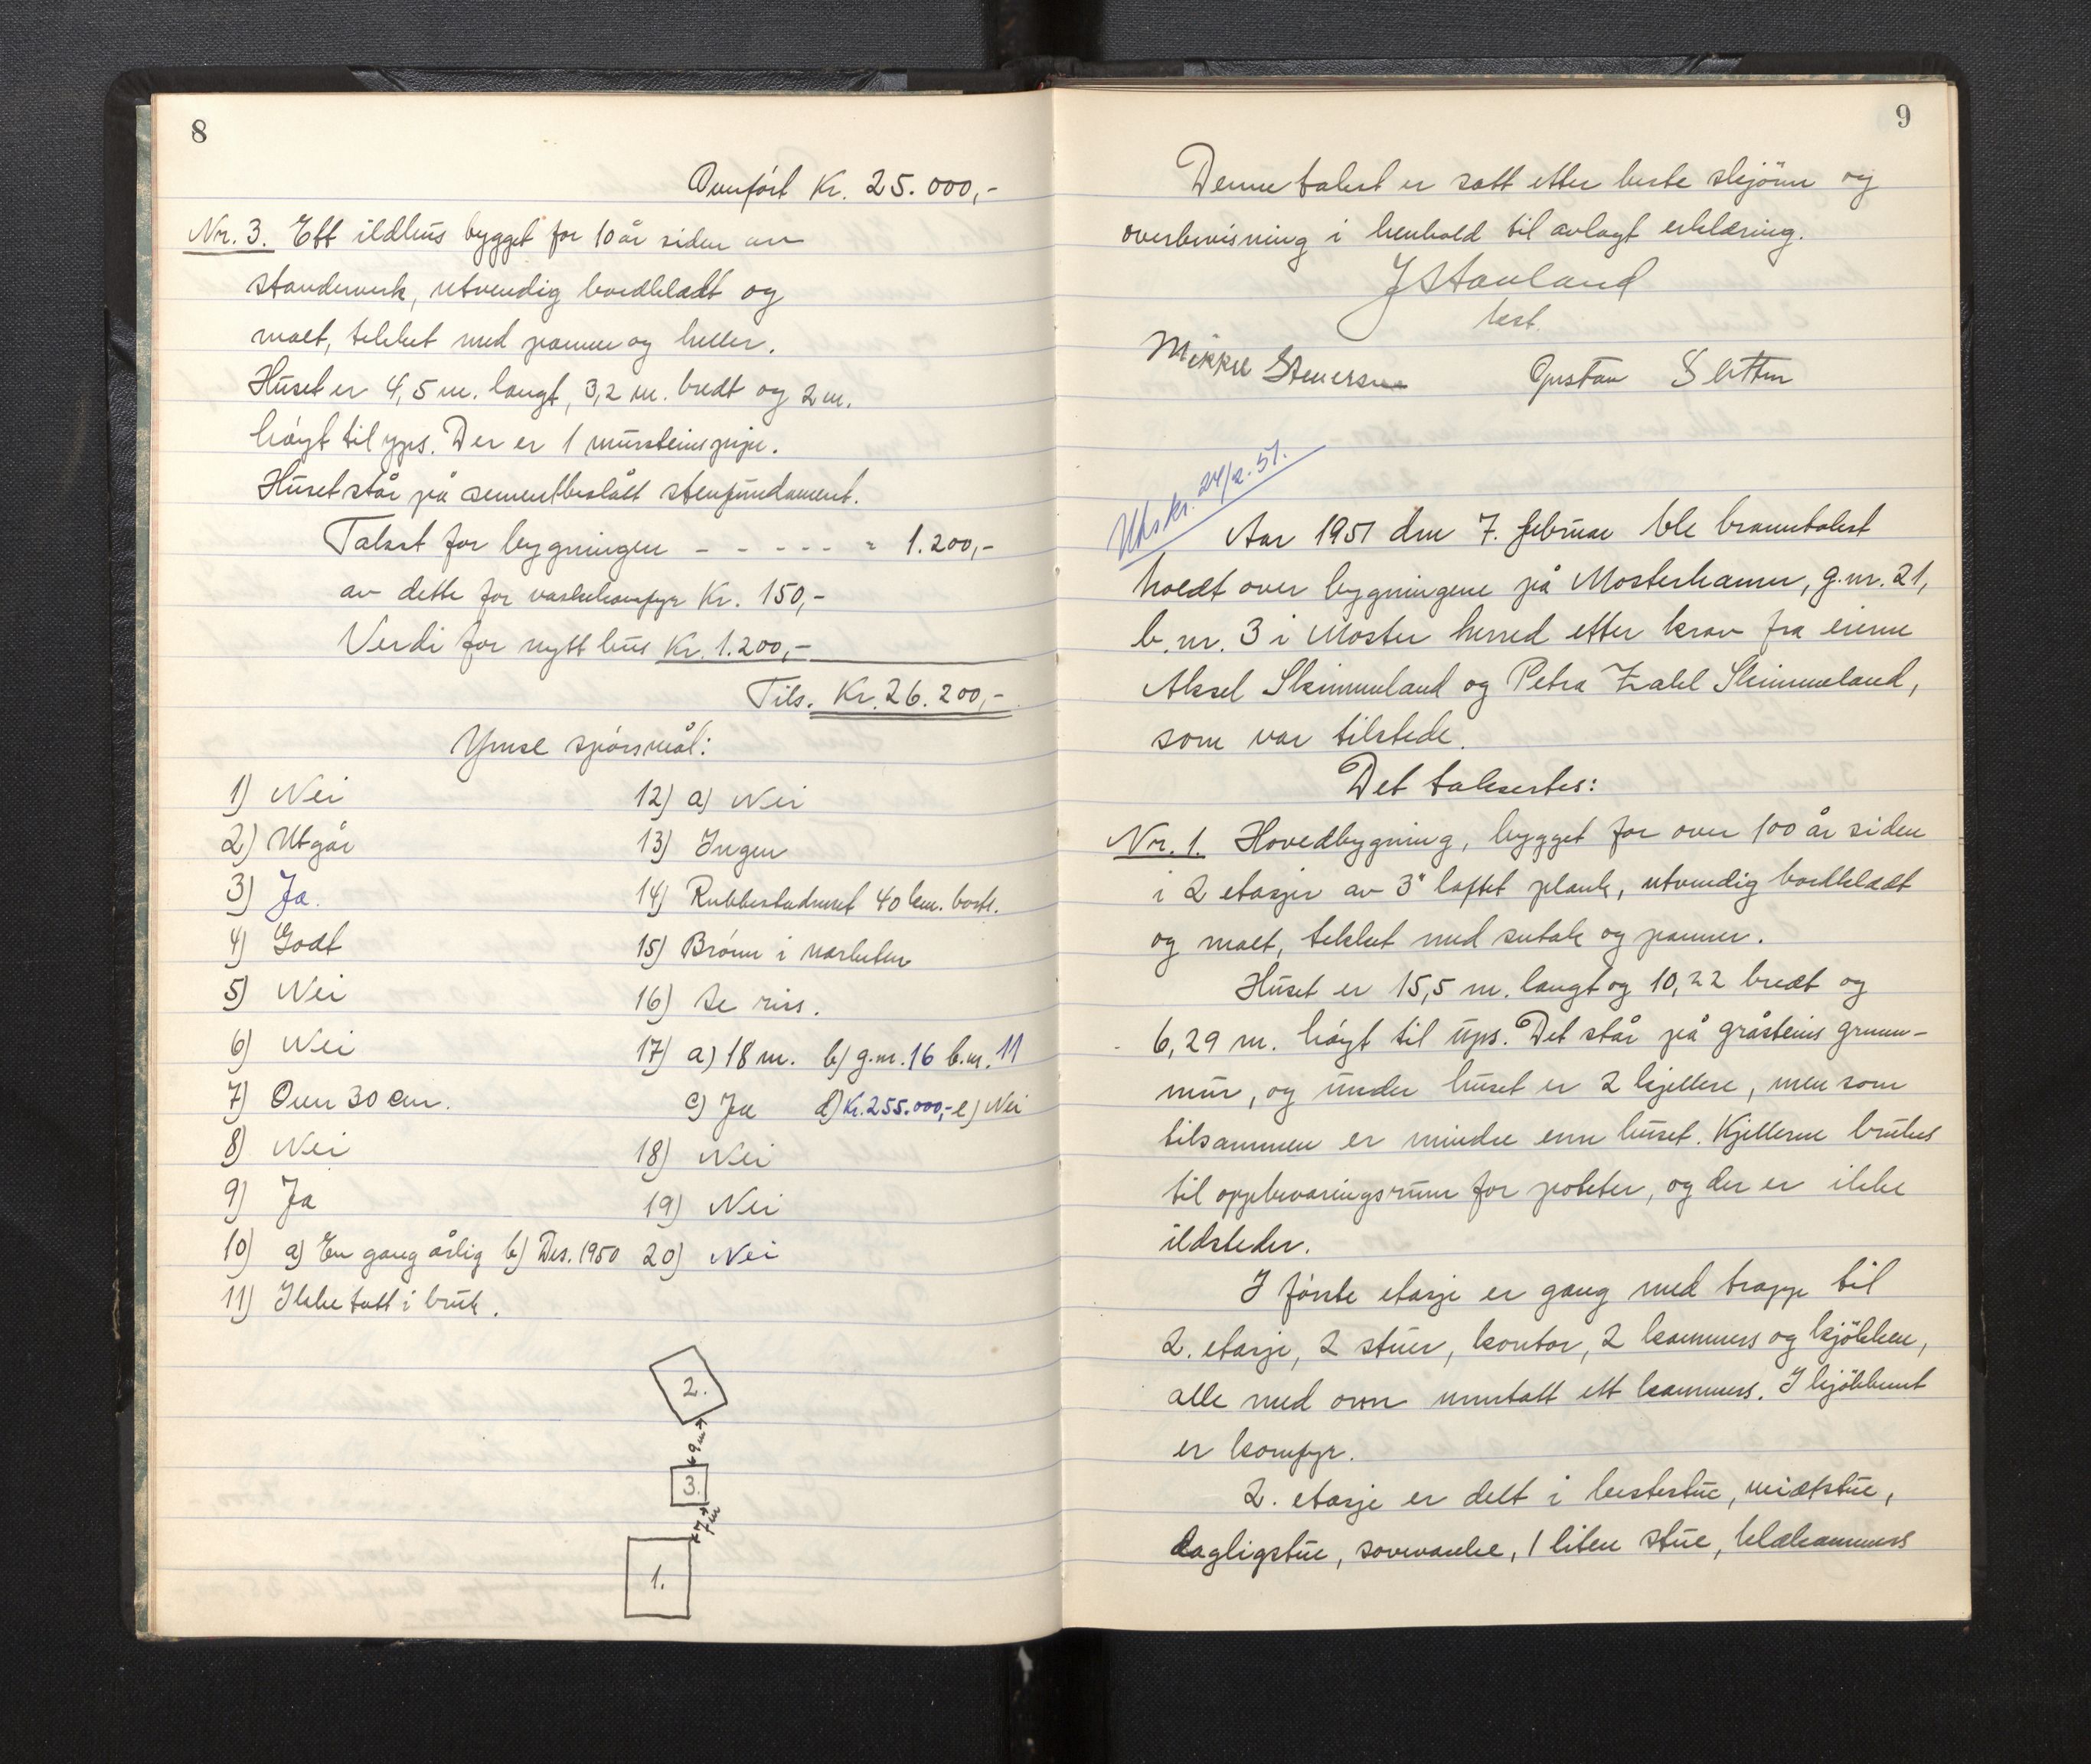 8
Overført Kr. 25.000,-
Nr. 3. Ett ildhus bygget for 10 år siden av
standerverk, utvendig bordkledt og
malt, tekket med panner og heller.
Huset er 4,5 m. langt, 3,2 m. bredt og 2 m.
høyt til ups. Der er 1 mursteinspipe.
Huset står på sementbeslått stenfundament.
Takst for bygningen - - - - - " 1.200,-
av dette for vaskekomfyr Kr. 150,-
Verdi for nytt hus Kr. 1.200,-
Tils. Kr. 26.200,-
Ymse spørsmål:
1) Nei
2) Utgår
3) Ja.
4) Godt
5) Nei
6) Nei
7) Over 30 cm.
8) Nei
9) Ja
10) a) En gang årlig b) Des. 1950
11) Ikke tatt i bruk.
12) a) Nei
13) Ingen
14) Rubbestadneset 40 km. borte.
15) Brønn i nærheten
16) Se riss.
17) a) 18 m. b) g.nr. 16 b.nr. 11
c) Ja d) Kr. 255.000,- e) Nei
18) Nei
19) Nei
20) Nei
2.
9 m
3.
7 m
1.
9
Denne takst er satt etter beste skjönn og
overbevisning i henhold til avlagt erklæring.
J Stavland
lest.
Mikkel Steinersen Gustav Sletten
Utskr. 24/2. 51.
Aar 1951 den 7. februar ble branntakst
holdt over bygningene på Mosterhamn, g.nr. 21,
b.nr. 3 i Moster herred etter krav fra eierne
Aksel Skimmeland og Petra Zahl Skimmeland,
som var tilstede.
Det taksertes:
Nr. 1. Hovedbygning, bygget for over 100 år siden
i 2 etasjer av 3" laftet plank, utvendig bordkledt
og malt, tekket med sutak og panner.
Huset er 15,5 m. langt og 10,22 bredt og
6,29 m. høyt til ups. Det står på gråsteins grunn-
mur, og under huset er 2 kjellere, men som
tilsammen er mindre enn huset. Kjellerne brukes
til oppbevaringsrum for poteter, og der er ikke
ildsteder.
I første etasje er gang med trapp til
2. etasje, 2 stuer, kontor, 2 kammers og kjökken,
alle med ovn unntatt ett kammers. I kjökkenet
er komfyr.
2. etasje er delt i bestestue, midtstue,
dagligstue, soveværelse, 1 liten stue, klekammers